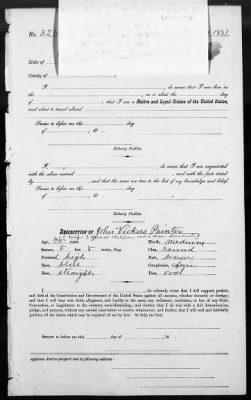 No. 32
1881
State of
County of
I, do swear that I was born in
the , on or about the day
of , that I am a Native and Loyal Citizen of the United States,
and about to travel abroad
Sworn to before me this day
of , 18 .
Notary Public.
I, do swear that I am acquainted
with the above-named , and with the facts stated
by , and that the same are true to the best of my knowledge and belief.
Sworn to before me this day
of , 18 .
Notary Public.
DESCRIPTION OF John Vickers Painter
Age, years. Mouth, medium
Stature, 5 feet 8 inches, Eng. Chin, round
Forehead, high Hair, brown
Eyes, blue Complexion,
Nose, straight Face, oval
I, , do solemnly swear that I will support, protect,
and defend the Constitution and Government of the United States against all enemies, whether domestic or foreign;
and that I will bear true faith, allegiance, and loyalty to the same, any ordinance, resolution, or law of any State,
Convention, or Legislature to the contrary notwithstanding; and further, that I do this with a full determination,
pledge, and purpose, without any mental reservation or evasion whatsoever; and further, that I will well and faithfully
perform all the duties which may be required of me by law: So help me God.
Sworn to before me this day of , 18 .
Applicant desires passport to be sent to